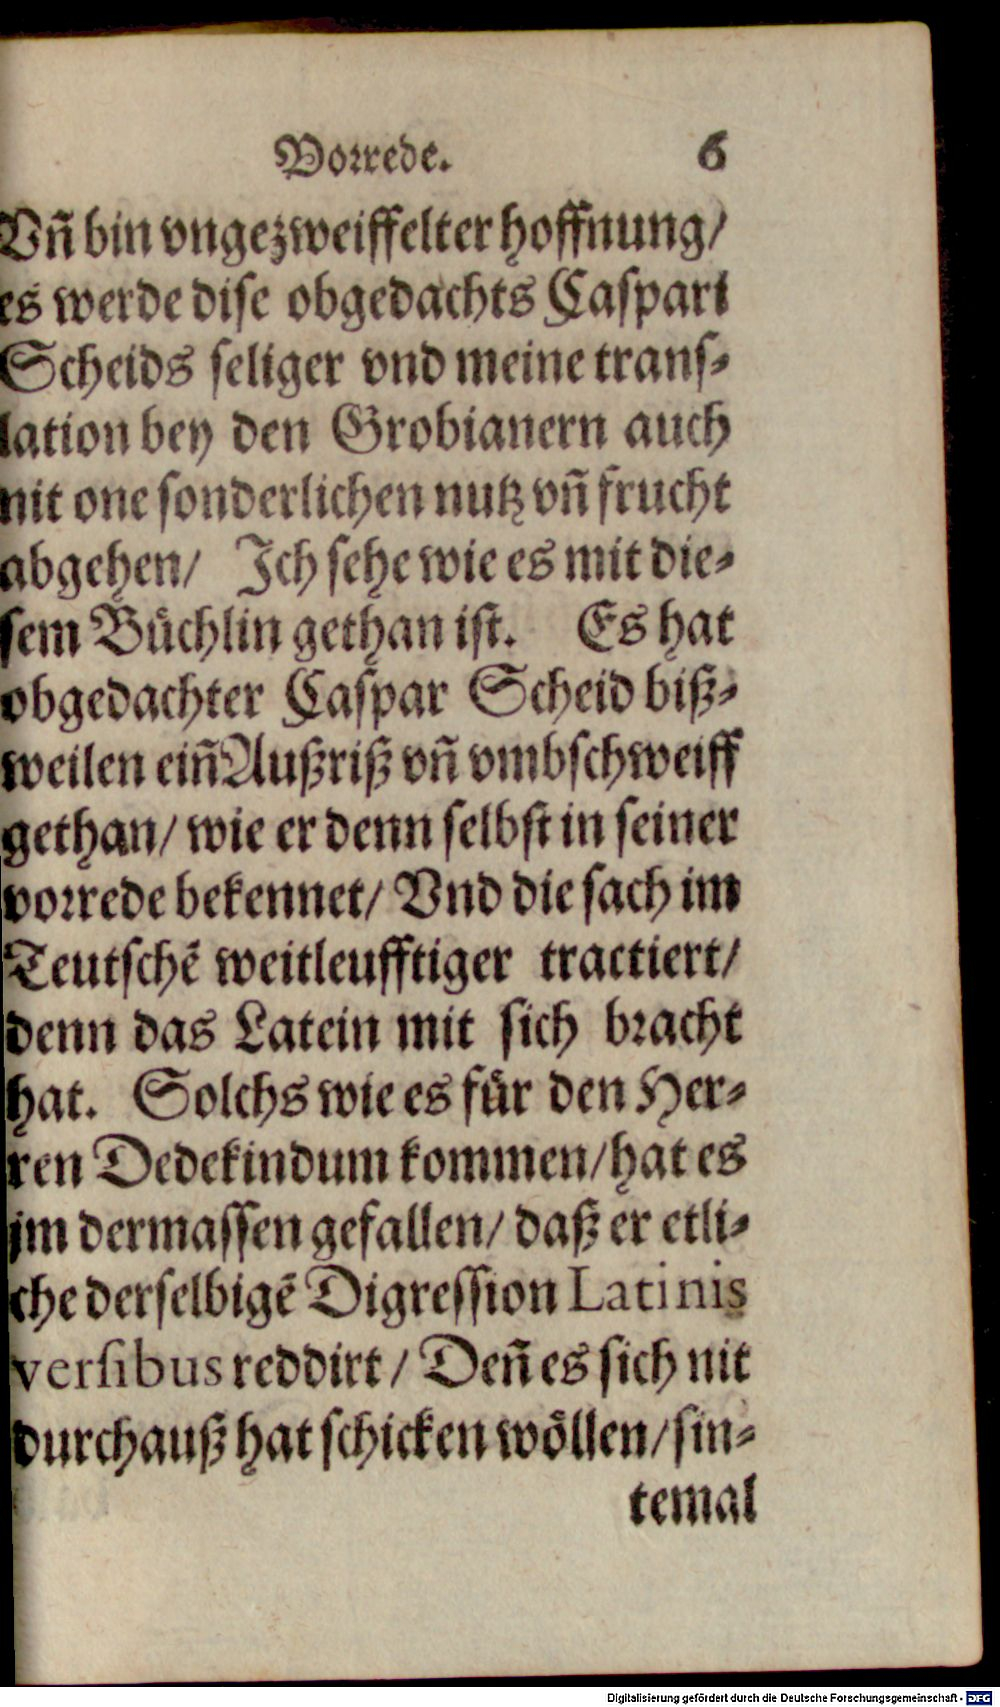 Vorrede. 6
Vñ bin vngezweiffelter hoffnung/
es werde dise obgedachts Caspari
Scheids seliger vnd meine trans-
lation bey den Grobianern auch
nit one sonderlichen nutz vñ frucht
abgehen/ Ich sehe wie es mit die-
sem Büchlin gethan ist. Es hat
obgedachter Caspar Scheid biß-
weilen eiñ Außriß vñ vmbschweiff
gethan/ wie er denn selbst in seiner
vorrede bekennet/ Vnd die sach im
Teutschē weitleufftiger tractiert/
denn das Latein mit sich bracht
hat. Solchs wie es für den Her-
ren Dedekindum kommen/ hat es
jm dermassen gefallen/ daß er etli-
che derselbigē Digression Latinis
versibus reddirt/ Deñ es sich nit
durchauß hat schicken wöllen/ sin-
temal
Digitalisierung gefördert durch die Deutsche Forschungsgemeinschaft - DFG